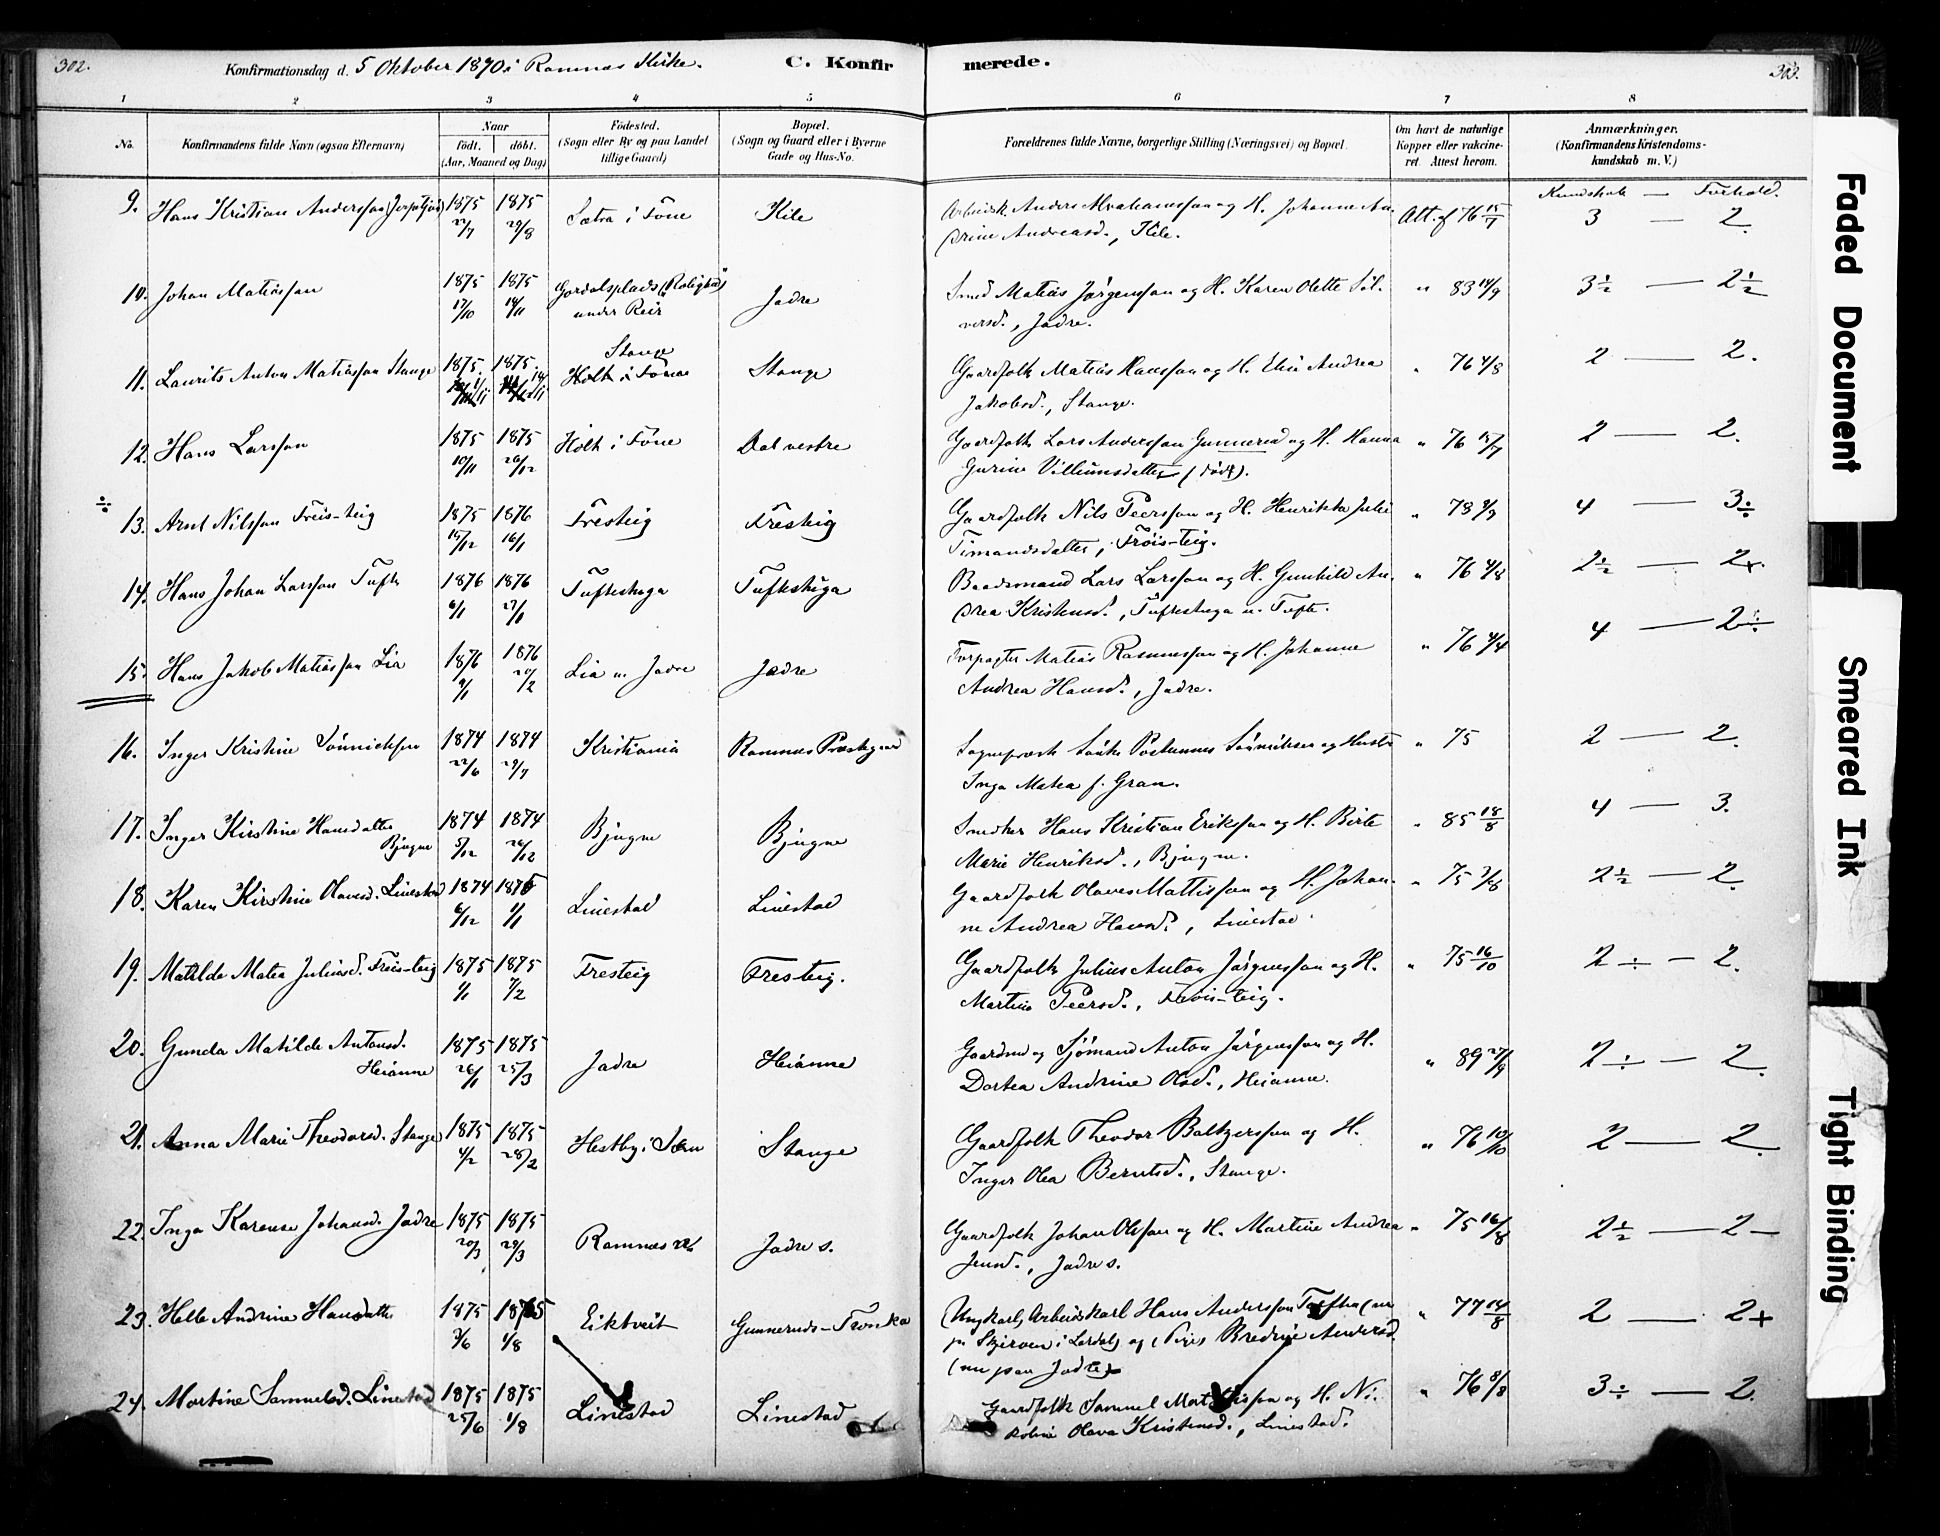 302.
Konfirmationsdag d. 5 Oktober 1890 i Ramnas Kirke.
C. Konfirmerede.
303.
1 2 3 4 5 6 7 8
No.
Konfirmandens fulde Navn (ogsaa Efternavn)
Naar
födt. döbt.
(Aar, Maaned og Dag)
Födested.
(Sogn eller By og paa Landet
tillige Gaard)
Bopæl.
(Sogn og Gaard eller i Byerne
Gade og Hus-No.
Forældrenes fulde Navne, borgerlige Stilling (Næringsvei) og Bopæl.
Om havt de naturlige
Kopper eller vakcine-
ret. Attest herom.
Anmærkninger.
(Konfirmandens Kristendoms-
kundskab m. V.)
Kundskab — Forhold.
9. Hans Kristian Anderssen 1875 1875 Sætra i Föne Kile
22/7 29/8
Arbeidsk. Anders Abrahamssen og H. Johanne An-
drine Andreasd., Kile.
Att. af 76 15/7 3 — 2.
10. Johan Matiassen 1875 1875 Gordalsplads (Rolighed) Jadre
17/10 14/11 under Reir
Smed Matias Jörgenssen og H. Karen Olette Söl-
versd., Jadre.
" 83 14/9 3½ — 2½
11. Laurits Anton Matiassen Stange 1875 1875 Stange
Holt i Föne Stange
Gaardfolk Matias Hanssen og H. Elise Andrea
Jakobsd., Stange.
" 76 4/8 2 — 2.
12. Hans Larssen 1875 1875 Holt i Föne Dal vestre
10/11 26/12
Gaardfolk Lars Anderssen Gunnerud og H. Hanna
Gurine Villumsdatter (födt).
" 76 15/7 2 — 2.
÷ 13. Arnt Nilssen Fröis-teig 1875 1876 Fresteig Fresteig
15/12 16/1
Gaardfolk Nils Peerssen og H. Henrikka Julie
Timandsdatter, Fröis-teig.
" 78 3/9 4 — 3÷
14. Hans Johan Larssen Tufte 1876 1876 Tuftestuga Tuftestuga
6/1 27/1
Baadsmand Lars Larssen og H. Gunhild An-
drea Kristensd., Tuftestuga u. Tufte.
" 76 4/8 2½ — 2+.
15. Hans Jakob Matiassen Lia 1876 1876 Lia u. Jadre Jadre
9/1 20/2
Forpagter Matias Rasmussen og H. Johanne
Andrea Hansd., Jadre.
" 76 4/4 4 — 2÷
16. Inger Kristine Sönnichsen 1874 1874 Kristiania Ramnes Præstegaard
22/6 29/7
Sogneprest Sönke Postumus Sönnichsen og Hustr
Inga Matea f. Gran.
" 75 2 — 2.
17. Inger Kirstine Hansdatter 1874 1874 Bjugne Bjugne
Bjugne 5/12 26/12
Snedker Hans Kristian Erikssen og H. Birte
Marie Henriksd., Bjugne.
" 85 18/8 4 — 3.
18. Karen Kirstine Olavesd. Linestad 1874 1875 Linestad Linestad
6/12 1/1
Gaardfolk Olaves Mattissen og H. Johan-
ne Andrea Hansd., Linestad.
" 75 7/6 2½ — 2.
19. Matilde Matea Juliusd. Fröis-teig 1875 1875 Fresteig Fresteig.
1/1 7/2
Gaardfolk Julius Anton Jörgenssen og H.
Martine Peersd., Fröis-teig.
" 75 16/10 2÷ — 2.
20. Gunda Matilde Antonsd. 1875 1875 Jadre Heianne
Heianne 26/1 25/3
Gaardm og Sjömand Anton Jörgenssen og H.
Dortea Andrine Olsd., Heianne.
" 89 27/9 2÷ — 2.
21. Anna Marie Theodorsd. Stange 1875 1875 Hestby i Sem Stange
4/2 28/2
Gaardfolk Theodor Baltzerssen og H.
Inger Olea Berntsd., Stange.
" 76 10/10 2 — 2.
22. Inga Karense Johansd. Jadre 1875 1875 Ramnes Jadre s.
20/3 29/3
Gaardfolk Johan Olssen og H. Martine Andrea
Jensd., Jadre s.
" 75 16/8 2½ — 2—
23. Helle Andrine Hansdatter 1875 1875 Eiktveit Gunneruds-Trönka
3/6 1/8
(Ungkarl, Arbeidskarl Hans Anderssen
paa Skjerven i Lardal) og (Pige Bredine Andersd.
(nu paa Jadre)
" 77 14/8 2 — 2+
24. Martine Samuelsd. Linestad 1875 1875 Linestad Linestad
25/6 1/8
Gaardfolk Samuel Mattissen og H. Ni-
koline Olava Kristensd., Linestad.
" 76 8/8 3÷ — 2.
Faded Document
Smeared Ink
Tight Binding